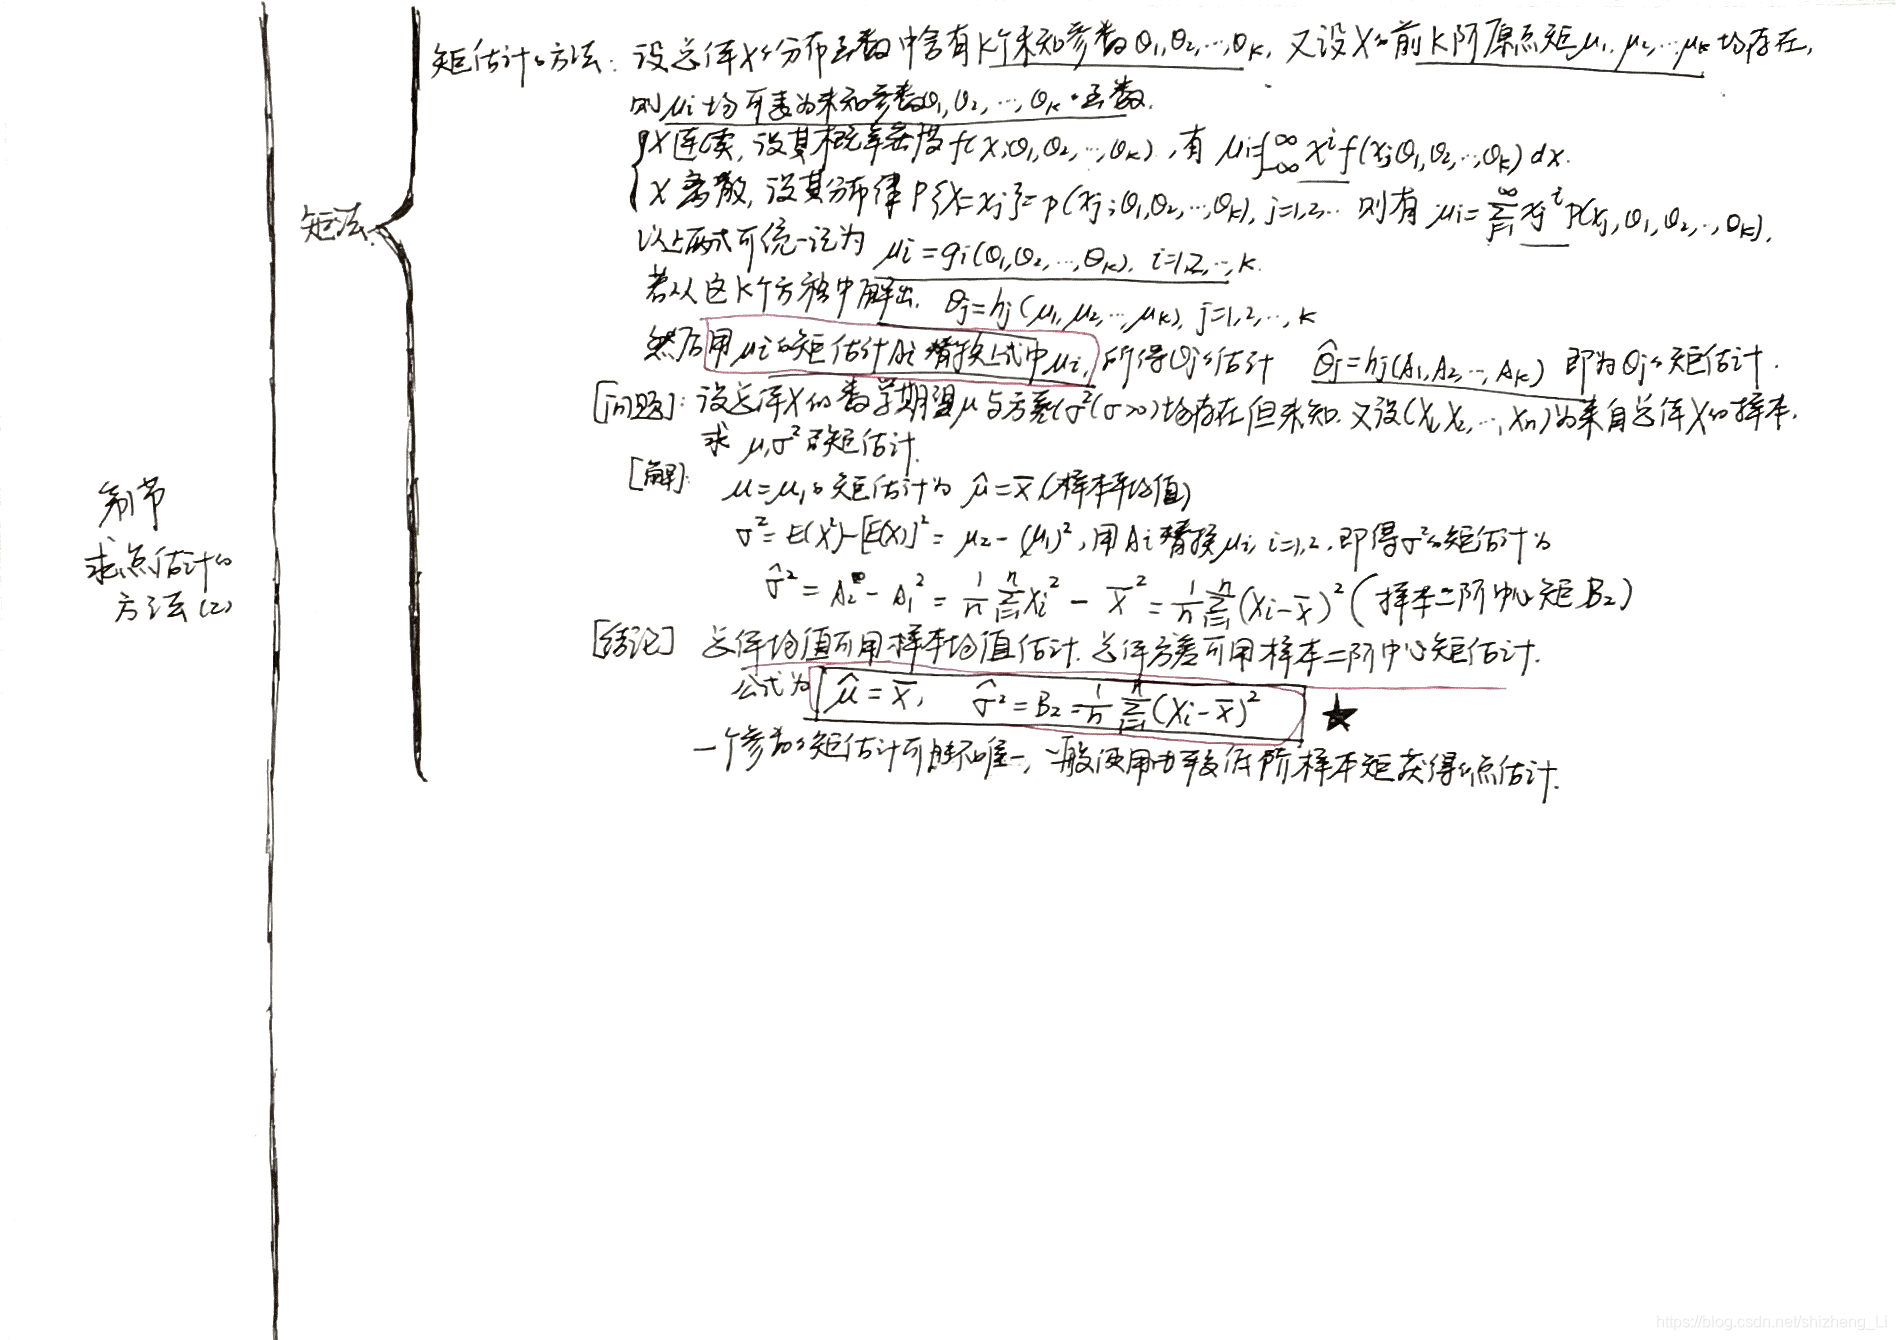 矩估计的方法: 设总体X的分布函数中含有k个未知参数θ₁,θ₂,…,θₖ, 又设X的前k阶原点矩μ₁, μ₂,…,μₖ均存在,
则μi均可表为未知参数θ₁,θ₂,…,θₖ的函数.
X连续, 设其概率密度f(x;θ₁,θ₂,…,θₖ), 有 μi=∫_{-∞}^{∞} xⁱf(x;θ₁,θ₂,…,θₖ)dx.
X离散, 设其分布律P{X=xj}=p(xj;θ₁,θ₂,…,θₖ), j=1,2,… 则有 μi=∑_{j=1}^{∞} xjⁱp(xj,θ₁,θ₂,…,θₖ).
矩法
以上两式可统一记为 μi=gi(θ₁,θ₂,…,θₖ), i=1,2,…,k.
若从这k个方程中解出, θj=hj(μ₁,μ₂,…,μₖ), j=1,2,…,k
然后用μi的矩估计Ai替换上式中μi, 所得θj的估计 θ̂j=hj(A₁,A₂,…,Aₖ) 即为θj的矩估计.
[问题]: 设总体X的数学期望μ与方差σ²(σ>0)均存在但未知. 又设(X₁,X₂,…,Xn)为来自总体X的样本.
求 μ,σ²的矩估计.
[解]:
μ=μ₁的矩估计为 μ̂=X̄ (样本平均值)
σ²=E(X²)-[E(X)]²=μ₂-(μ₁)², 用Ai替换μi, i=1,2, 即得σ²的矩估计为
σ̂²=A₂-A₁²=1/n ∑_{i=1}^{n} Xi²-X̄²=1/n ∑_{i=1}^{n}(Xi-X̄)² (样本二阶中心矩B₂)
[结论] 总体均值可用样本均值估计. 总体方差可用样本二阶中心矩估计.
公式为 μ̂=X̄, σ̂²=B₂=1/n ∑_{i=1}^{n}(Xi-X̄)² ★
一个参数的矩估计可能不唯一, 一般使用较低阶样本矩获得的点估计.
节
求点估计的
方法(2)
https://blog.csdn.net/shizheng_Li